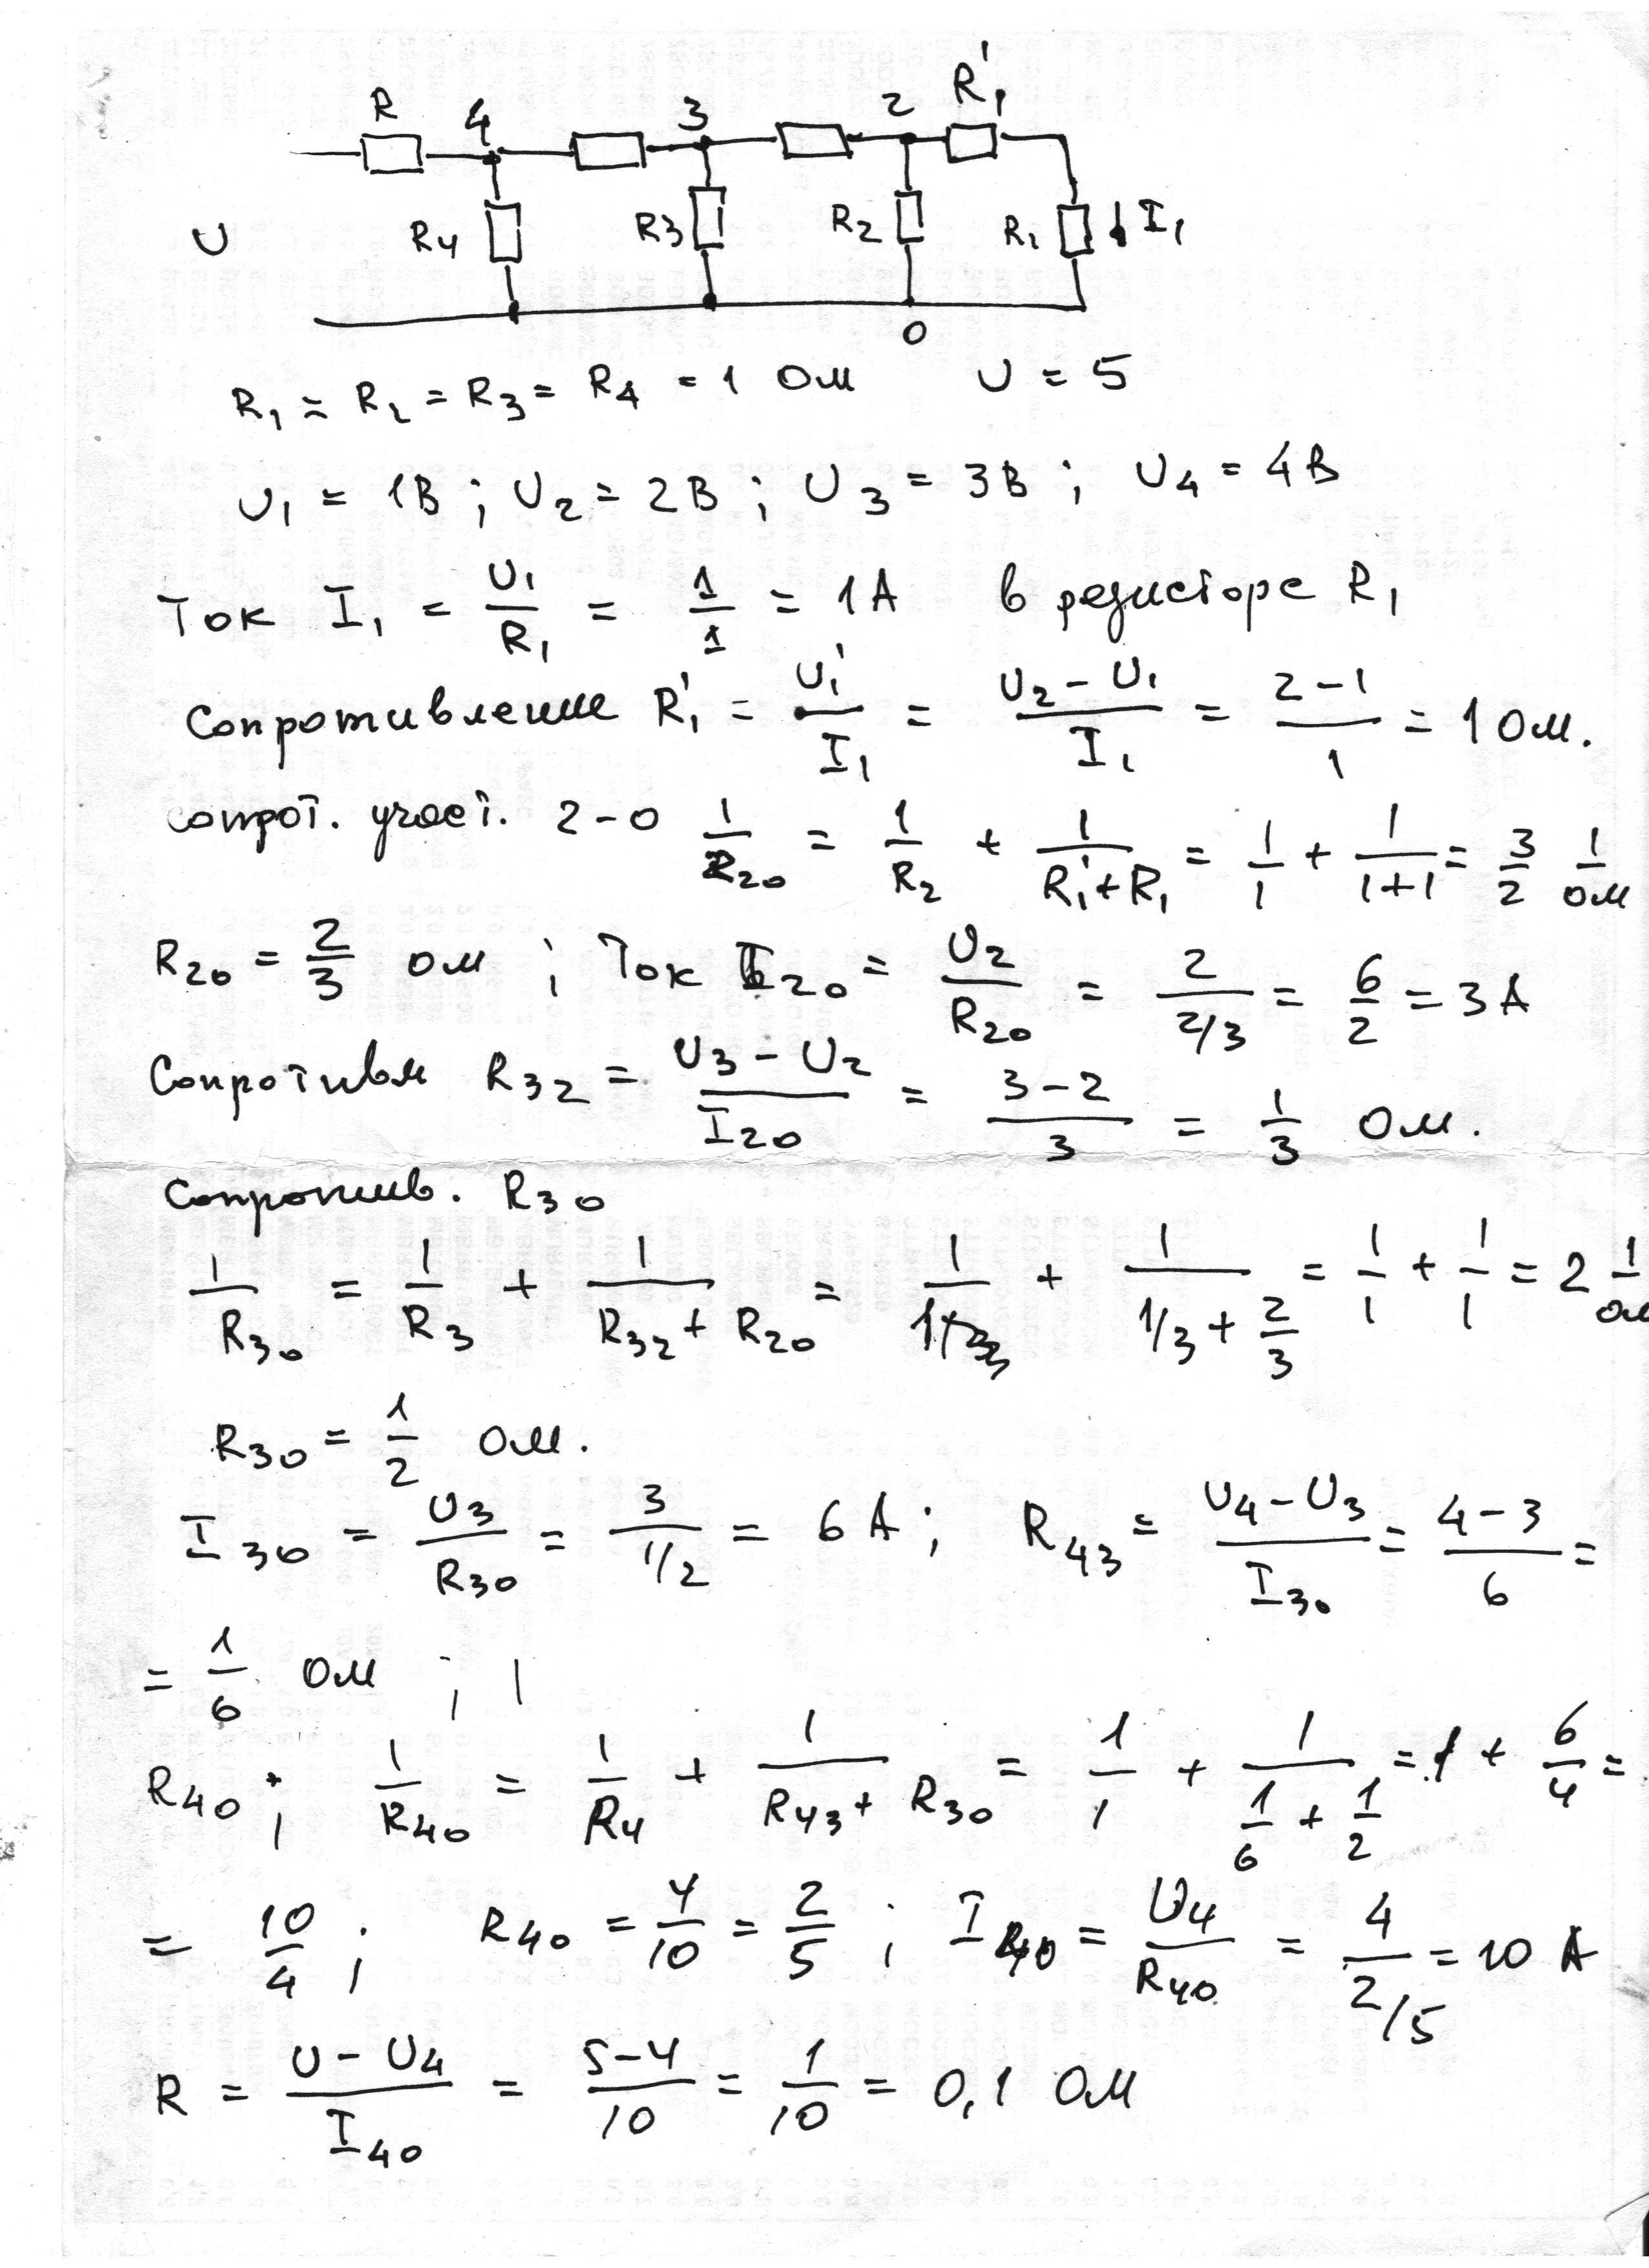 R 4 3 2 R'₁
U R₄ R₃ R₂ R₁ I₁
0
R₁ = R₂ = R₃ = R₄ = 1 Ом U = 5
U₁ = 1В ; U₂ = 2В ; U₃ = 3В ; U₄ = 4В
Ток I₁ = U₁/R₁ = 1/1 = 1А в резисторе R₁
Сопротивление R'₁ = U'₁/I₁ = (U₂ - U₁)/I₁ = (2-1)/1 = 1 Ом.
сопрот. участ. 2-0 1/R₂₀ = 1/R₂ + 1/(R'₁+R₁) = 1/1 + 1/(1+1) = 3/2 1/Ом
R₂₀ = 2/3 Ом ; Ток I₂₀ = U₂/R₂₀ = 2/(2/3) = 6/2 = 3 А
Сопротивл R₃₂ = (U₃ - U₂)/I₂₀ = (3-2)/3 = 1/3 Ом.
Сопротив. R₃₀
1/R₃₀ = 1/R₃ + 1/(R₃₂ + R₂₀) = 1/1 + 1/(1/3 + 2/3) = 1/1 + 1/1 = 2 1/Ом
R₃₀ = 1/2 Ом.
I₃₀ = U₃/R₃₀ = 3/(1/2) = 6 А ; R₄₃ = (U₄ - U₃)/I₃₀ = (4-3)/6 =
= 1/6 Ом ;
R₄₀ ; 1/R₄₀ = 1/R₄ + 1/(R₄₃ + R₃₀) = 1/1 + 1/(1/6 + 1/2) = 1 + 6/4 =
= 10/4 ; R₄₀ = 4/10 = 2/5 ; I₄₀ = U₄/R₄₀ = 4/(2/5) = 10 А
R = (U - U₄)/I₄₀ = (5-4)/10 = 1/10 = 0,1 Ом